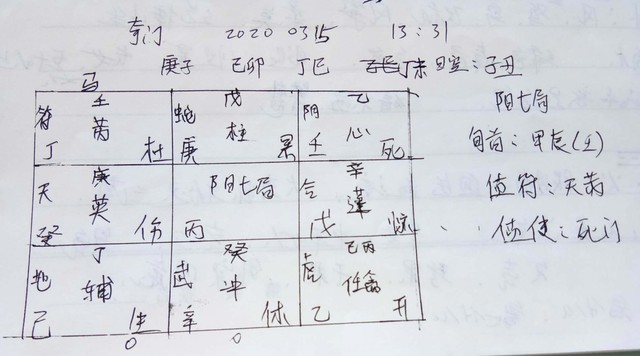 奇门 2020 0315 13:31
庚子 己卯 丁巳 丁未 日空:子丑
马
符 壬 芮 丁 杜
蛇 戊 柱 庚 景
阴 乙 心 壬 死
阳七局
旬首:甲辰(壬)
天 庚 英 癸 伤
阳七局 丙
合 辛 蓬 戊 惊
值符:天芮
值使:死门
地 丁 辅 己 生
武 癸 冲 辛 休
虎 己丙 任禽 乙 开
0 0